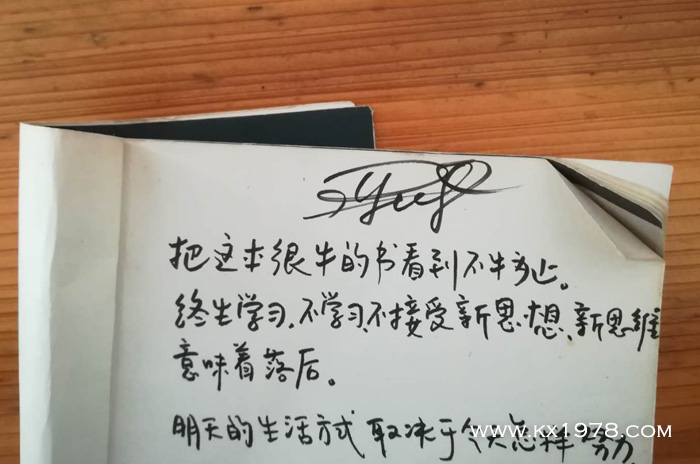 把这本很牛的书看到不牛为止。
终生学习，不学习、不接受新思想、新思维
意味着落后。
明天的生活方式取决于今天怎样努力
www.kx1978.com